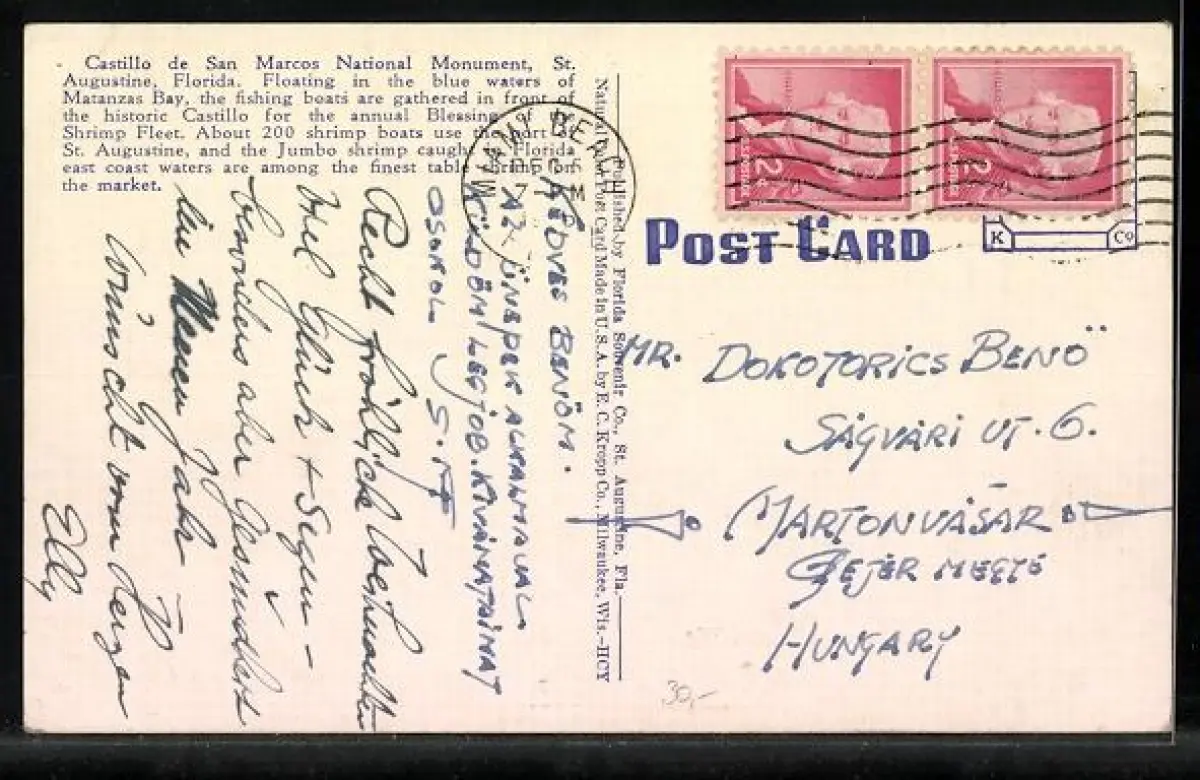 Castillo de San Marcos National Monument, St.
Augustine, Florida. Floating in the blue waters of
Matanzas Bay, the fishing boats are gathered in front of
the historic Castillo for the annual Blessing of the
Shrimp Fleet. About 200 shrimp boats use the port of
St. Augustine, and the Jumbo shrimp caught in Florida
east coast waters are among the finest table shrimp on
the market.
KEDVES BENÖM.
AZ ÜNEPEK ALKALMÁVAL
KÜLDÖM LEGJOB. KIVÁNATAIMAT
CSÓKOL
Recht fröhliche Weihnachten
Viel Glück + Segen -
besonders aber Gesundheit
im Neuen Jahr
wünscht von Herzen
Elly
Published by Florida Souvenir Co., St. Augustine, Fla.
Natural Color Card Made in U.S.A. by E. C. Kropp Co., Milwaukee, Wis.—HCY
MIAMI BEACH
DEC 5
7 PM
2¢
2¢
POST CARD
K Co
MR. DOKOTORICS BENÖ
SÁGVÁRI UT. 6.
MARTONVÁSÁR
FEJÉR MEGYE
HUNGARY
30,-